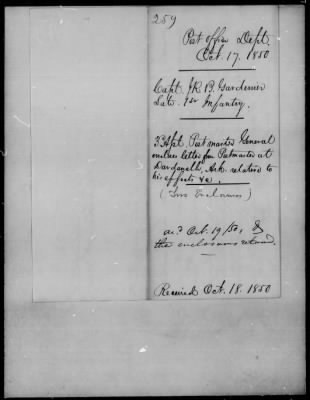 259
Post office Dept.
Oct. 17. 1850
Capt. J.R. B. Gardenier
Late 1st Infantry.
3d Asst. Post master General
encloses letter from Postmaster at
Dardanelle, Ark. relative to
his effects &c.
(Two Enclosures)
ac.d Oct. 19/50, &
the enclosures retured.
Received Oct. 18. 1850